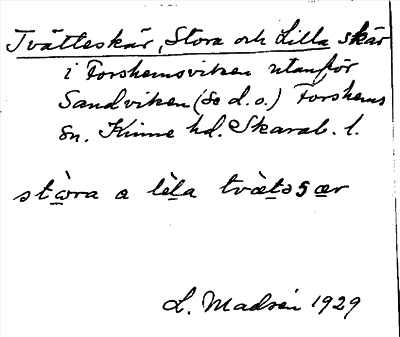 Tvätteskär, Stora och Lilla skär
i Forshemsviken utanför
Sandviken (Se d.o.) Forshems
sn. Kinne hd. Skarab. l.
stɷ̀ra a lèla tvæ̀təsær
L. Madsén 1929